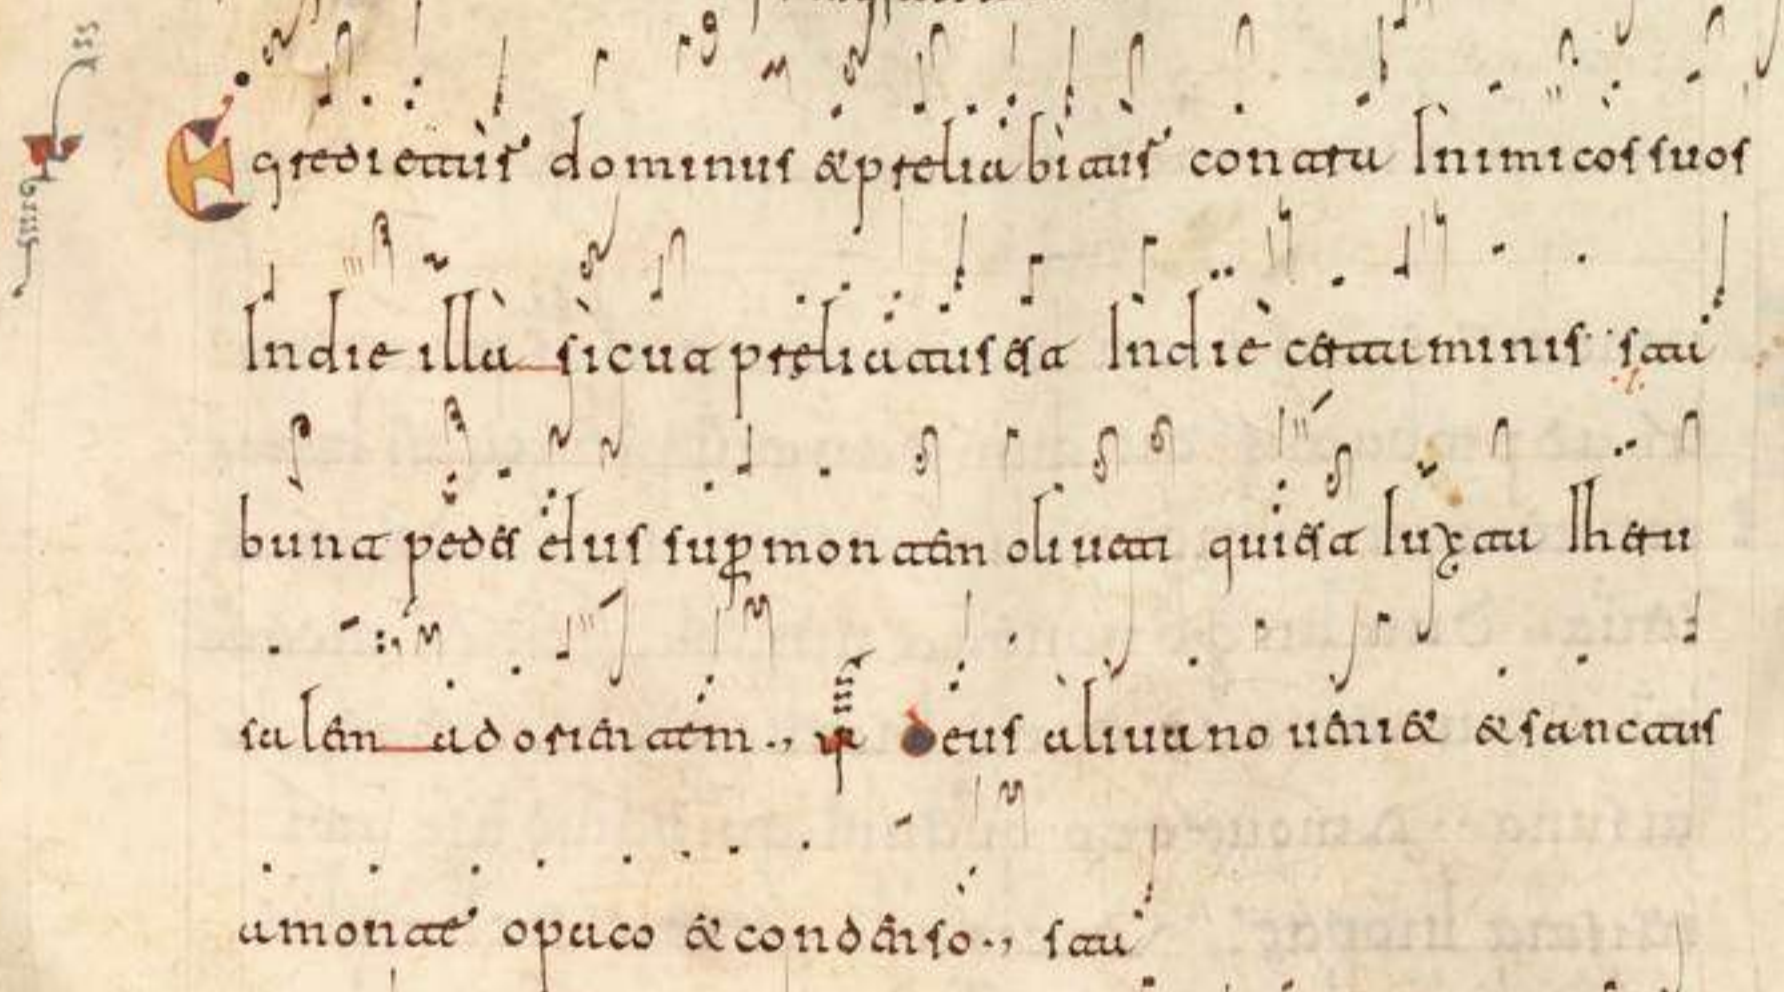 Egredietur dominus & preliabitur contra Inimicos suos
Indie illa sicut preliatus est Indie certaminis sta
bunt pedes eius sup montem oliueti qui est iuxta Iheru
salem ad orientem ., VR Deus a libano ueniet & sanctus
a monte opaco & condenso ., sta